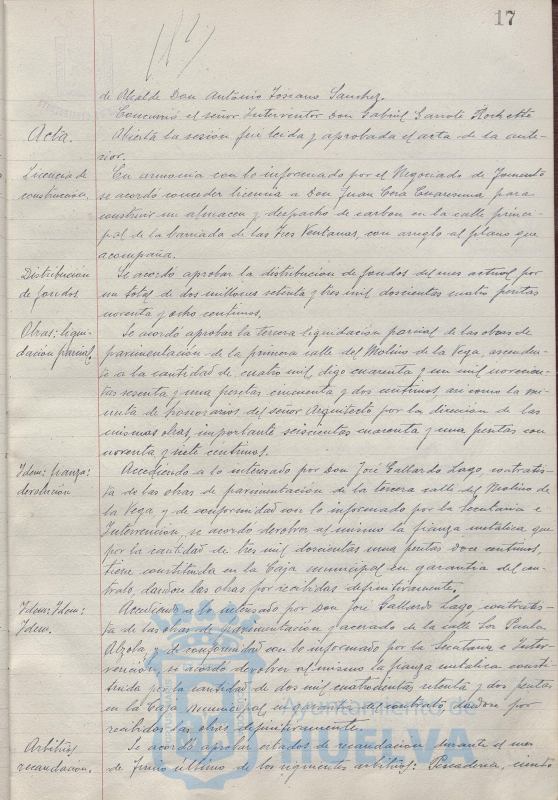 17
de Alcalde Don Antonio Toscano Sanchez.
Concurrió el señor Interventor Don Gabriel Garrote
Acta.
Abierta la sesión fué leida y aprobada el acta de la ante-
rior.
Licencia de
construcción.
En armonia con lo informado por el Negociado de Fomento
se acordó conceder licencia a Don Juan Cera Cuaresma para
construir un almacen y despacho de carbon en la calle princi-
pal de la barriada de las Tres Ventanas, con arreglo al plano que
acompaña.
Distribucion
de fondos
Se acordó aprobar la distribucion de fondos del mes actual por
un total de dos millones setenta y tres mil doscientas cuatro pesetas
noventa y ocho centimos.
Obras: liqui-
dacion parcial.
Se acordó aprobar la tercera liquidación parcial de las obras de
pavimentación de la primera calle del Molino de la Vega, ascenden-
te a la cantidad de cuatro mil digo cuarenta y un mil novecien-
tas sesenta y una pesetas cincuenta y dos centimos asi como la mi-
nuta de honorarios del señor Arquitecto por la direccion de las
mismas obras, importante seiscientas cuarenta y una pesetas con
noventa y siete centimos.
Idem: fianza:
devolucion
Accediendo a lo interesado por Don José Gallardo Lago, contratis-
ta de las obras de pavimentación de la tercera calle del Molino de
la Vega y de conformidad con lo informado por la Secretaria e
Intervención, se acordó devolver al mismo la fianza metalica que
por la cantidad de tres mil doscientas una pesetas doce centimos,
tiene constituida en la Caja municipal en garantia del con-
trato, dandose las obras por recibidas definitivamente.
Idem: Idem:
Idem.
Accediendo a lo interesado por Don José Gallardo Lago, contratis-
ta de las obras de pavimentación y acerado de la calle Sor Paula
Alzola, y de conformidad con lo informado por la Secretaria e Inter-
vención, se acordó devolver al mismo la fianza metalica consti-
tuida por la cantidad de dos mil cuatrocientas setenta y dos pesetas
en la Caja municipal en garantia del contrato, dandose por
recibidas las obras definitivamente.
Arbitrios
recaudacion.
Se acordó aprobar estados de recaudacion durante el mes
de Junio último de los siguientes arbitrios: Pescaderia, ciento
Ayuntamiento de
HUELVA